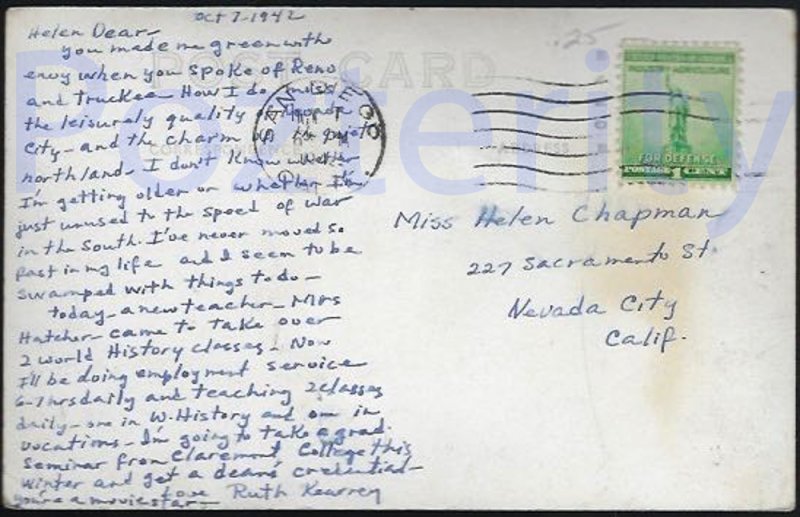 Oct 7-1942
Helen Dear-
you made me green with
envy when you spoke of Reno
and Truckee- How I do miss
the leisuraly quality of
City- and the charm of the
northland- I don't know whether
I'm getting older or whether I'm
just unused to the speed of war
in the South. I've never moved so
fast in my life and I seem to be
swamped with things to do-
today- a new teacher- Mrs
Hatcher- came to take over
2 World History classes- Now
I'll be doing employment service
6-7 hrs daily and teaching 2 classes
daily- one in W. History and one in
vocations- I'm going to take a grad.
seminar from Claremont College this
winter and get a deans credential-
you're a movie star- Love Ruth Kearney
.25
POST CARD
CORRESPONDENCE
ADDRESS
SAN DIEGO
FOR DEFENSE
POSTAGE 1 CENT
Miss Helen Chapman
227 Sacramento St.
Nevada City
Calif.
Pozterity